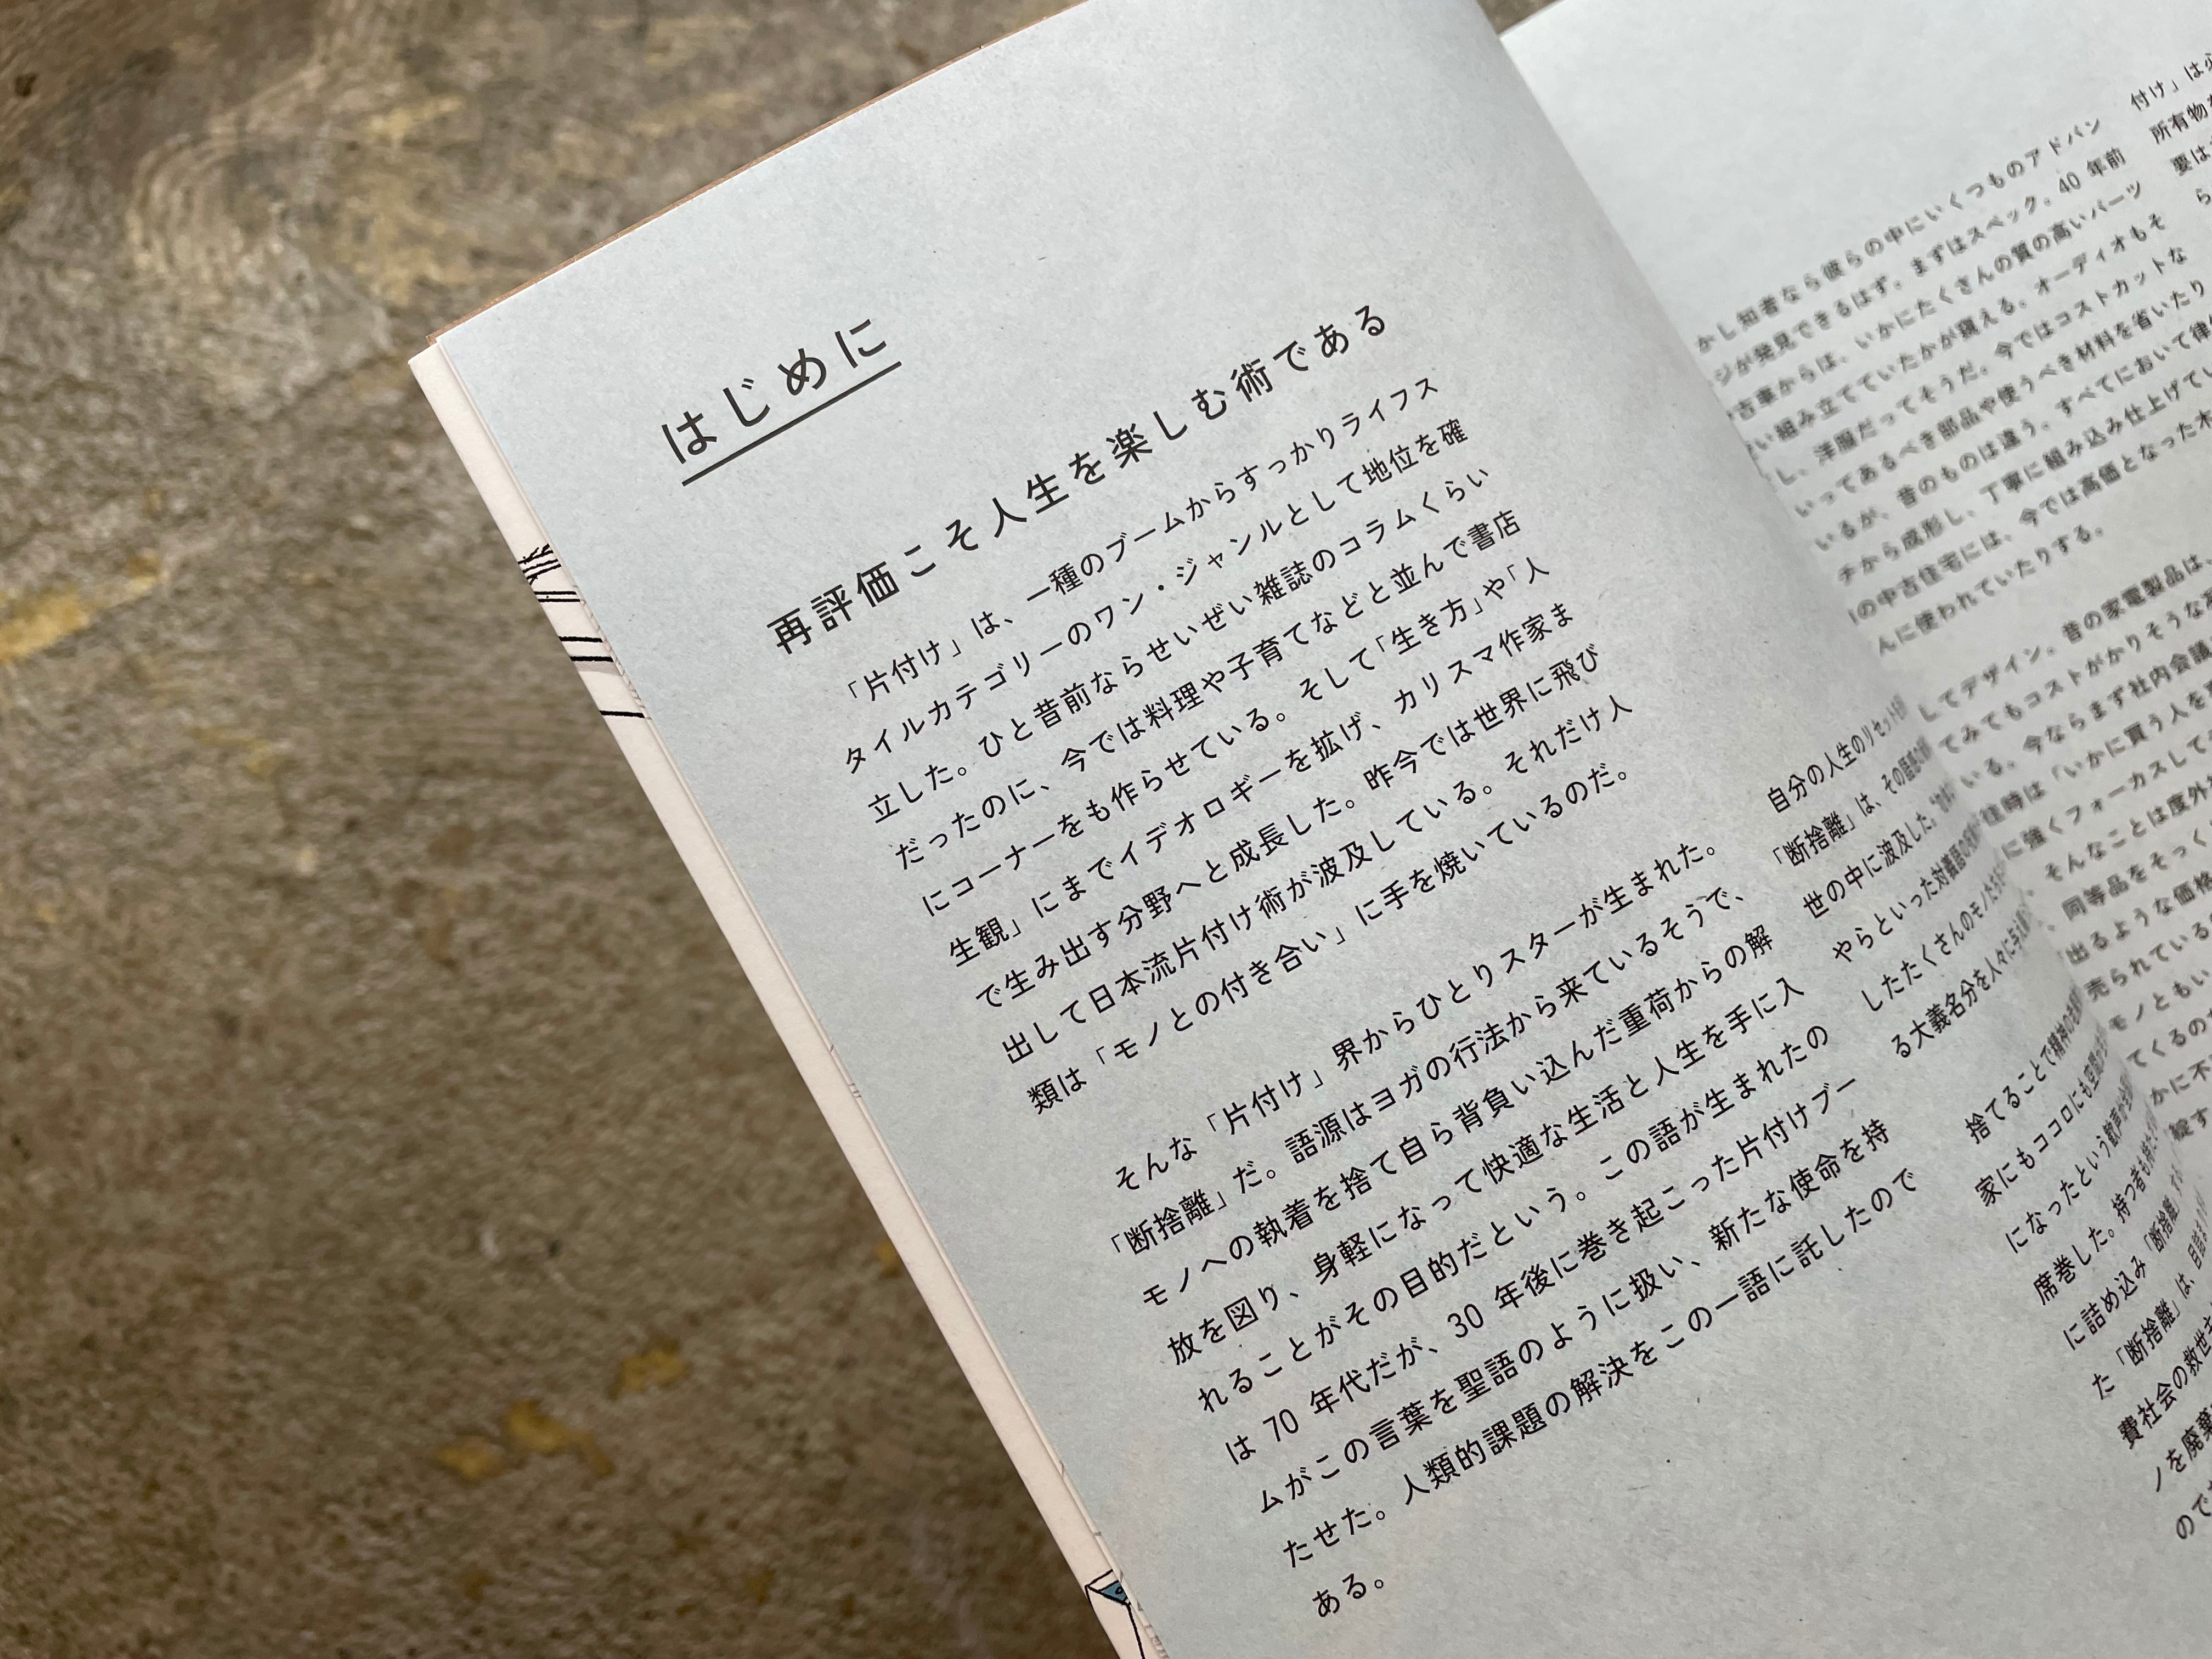 はじめに
再評価こそ人生を楽しむ術である
「片付け」は、一種のブームからすっかりライフス
タイルカテゴリーのワン・ジャンルとして地位を確
立した。ひと昔前ならせいぜい雑誌のコラムくらい
だったのに、今では料理や子育てなどと並んで書店
にコーナーをも作らせている。そして「生き方」や「人
生観」にまでイデオロギーを拡げ、カリスマ作家ま
で生み出す分野へと成長した。昨今では世界に飛び
出して日本流片付け術が波及している。それだけ人
類は「モノとの付き合い」に手を焼いているのだ。
そんな「片付け」界からひとりスターが生まれた。
「断捨離」だ。語源はヨガの行法から来ているそうで、
モノへの執着を捨て自ら背負い込んだ重荷からの解
放を図り、身軽になって快適な生活と人生を手に入
れることがその目的だという。この語が生まれたの
は 70 年代だが、30 年後に巻き起こった片付けブー
ムがこの言葉を聖語のように扱い、新たな使命を持
たせた。人類的課題の解決をこの一語に託したので
ある。
自分の人生のリセット
「断捨離」は、その
世の中に波及した。
やらといった対義語の
したたくさんのモノたち
る大義名分を人々に与え
捨てることで精神の
家にもココロにも空間が
になったという歓声が
席巻した。持つ者も持た
に詰め込み「断捨離」
た「断捨離」は、
費社会の救世主
ノを廃棄
ので
かし知者なら彼らの中にいくつものアドバン
ジが発見できるはず。まずはスペック。40 年前
古車からは、いかにたくさんの質の高いパーツ
い組み立てていたかが窺える。オーディオもそ
し、洋服だってそうだ。今ではコストカットな
いってあるべき部品や使うべき材料を省いたり
いるが、昔のものは違う。すべてにおいて律
チから成形し、丁寧に組み込み仕上げてい
の中古住宅には、今では高価となった木
んに使われていたりする。
してデザイン。昔の家電製品は、
てみてもコストがかりそうな
いる。今ならまず社内会議
往時は「いかに買う人を
に強くフォーカスして
、そんなことは度外
同等品をそっく
出るような価格
売られている
モノともい
てくるの
かに不
錠す
付け」は
所有物
要は
ら